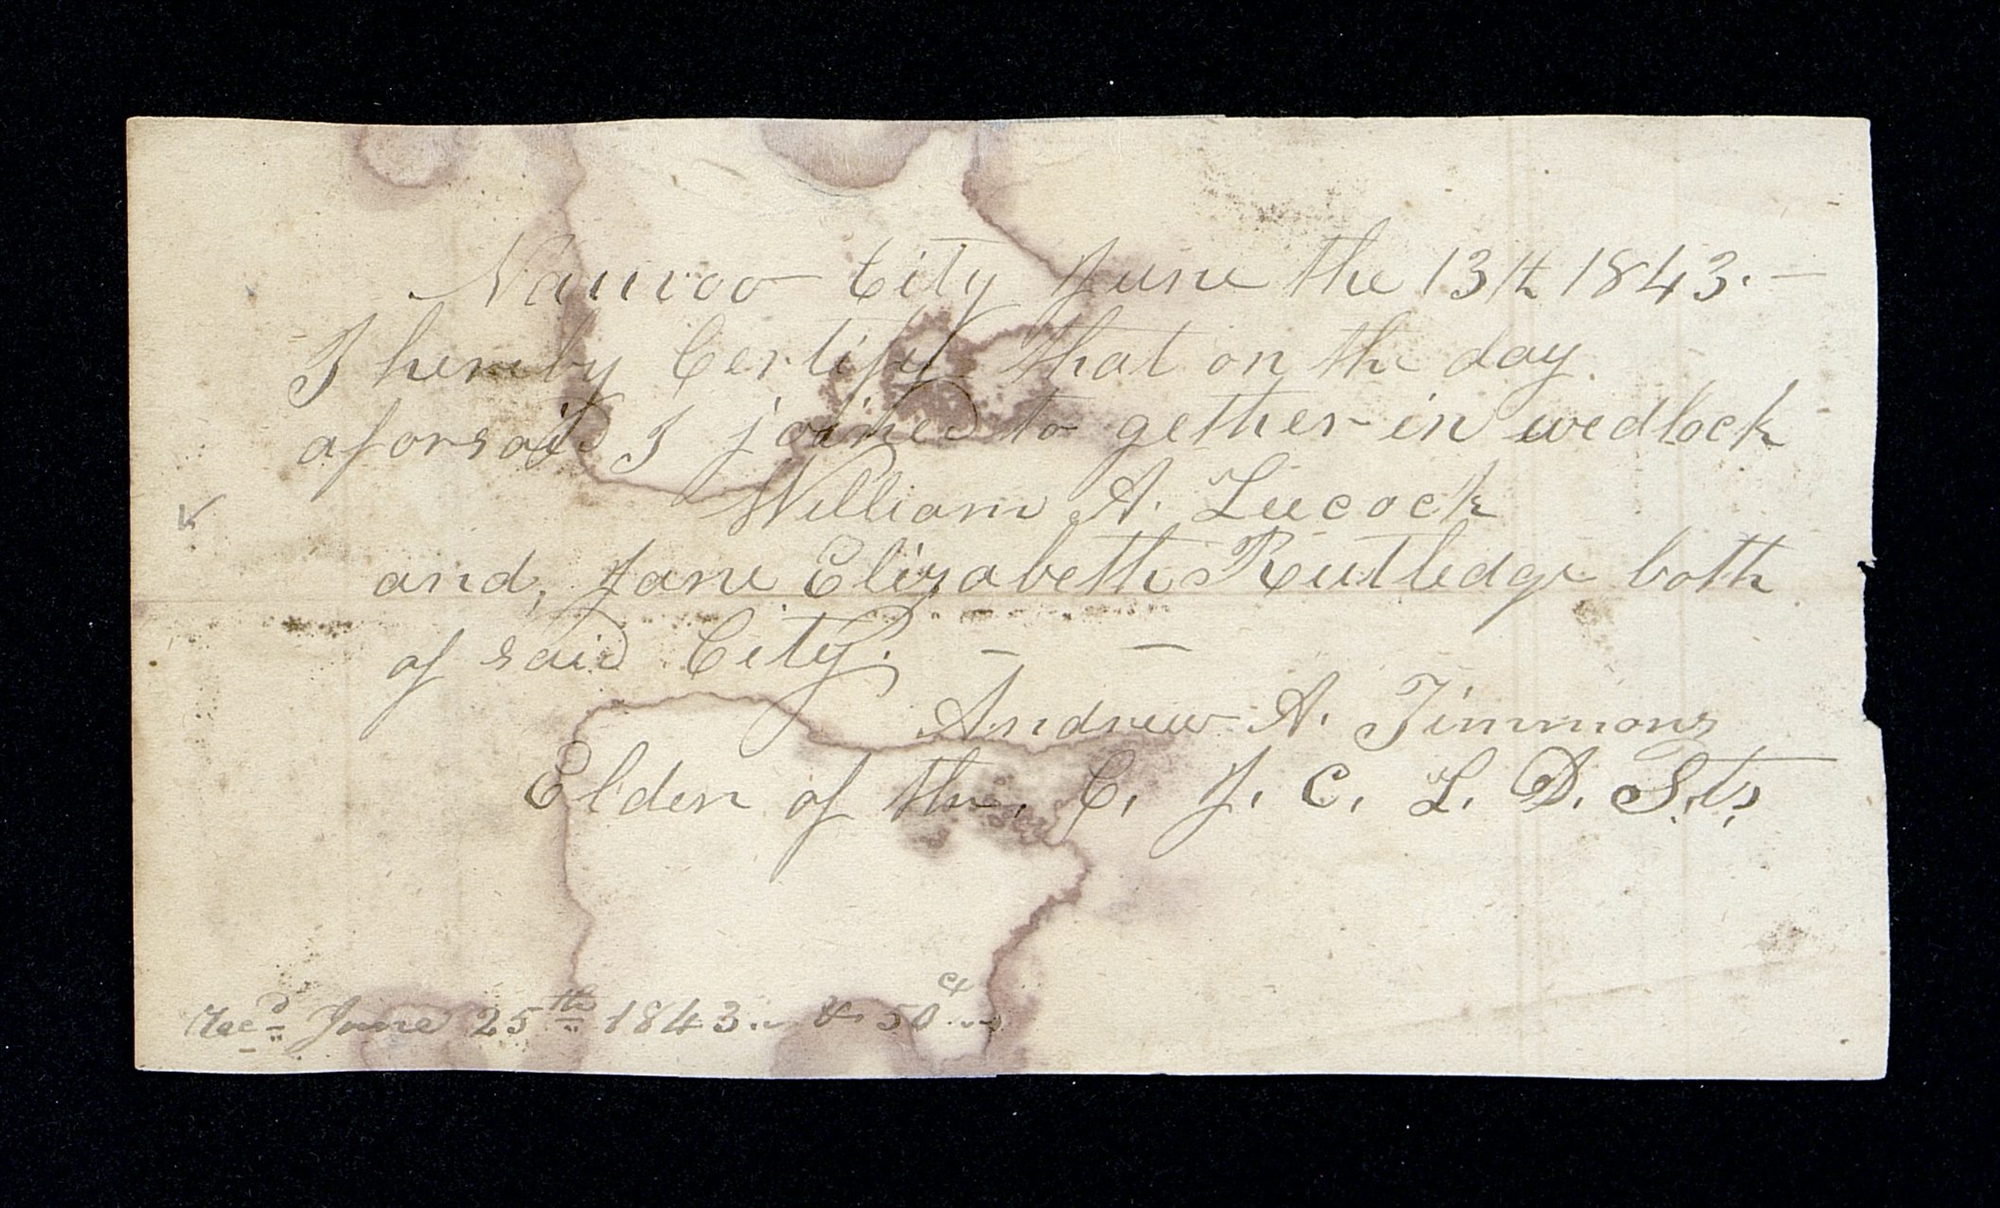 Nauvoo City June the 13th 1843. —
I hereby Certify that on the day
aforsaid I joined to gether in wedlock
William A. Lucock
and, Jane Elizabeth Rutledge both
of said City. — —
Andrew A. Timmons
Elder of the, C. J. C. L. D. Sts,
Recd June 25th 1843. & 50 cts